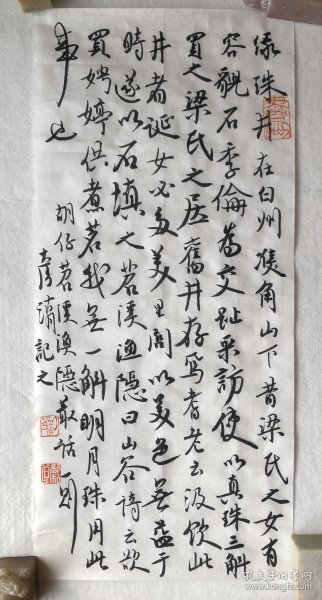 绿珠井在白州双角山下昔梁氏之女有
容貌石季倫為交趾采訪使以真珠三斛
買之梁氏之居舊井存焉耆老云汲飲此
井者誕女必多美里閭以美色無益于
時遂以石填之苕溪漁隱曰山谷詩云欲
買娉婷供煮茗我無一斛明月珠用此
事也
胡仔苕溪漁隱叢話一則
彦清記之
孔夫子旧书网